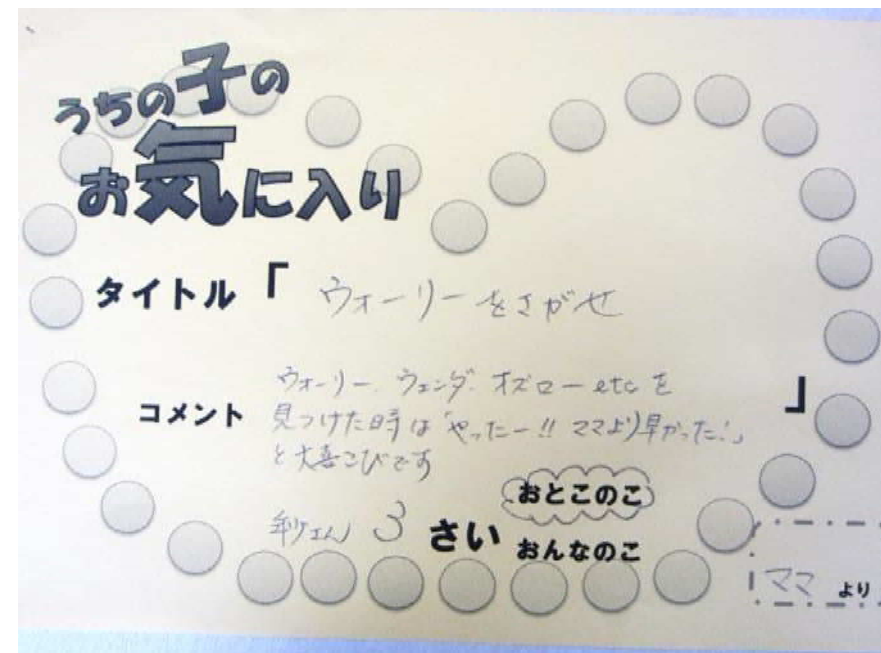 うちの子の
お気に入り
タイトル「 ウォーリーをさがせ
ウォーリー、ウェンダ、オズローetcを
コメント 見つけた時は「やったー!!ママより早かった!」
と大喜こびです
」
3 さい おとこのこ
おんなのこ
ママ より